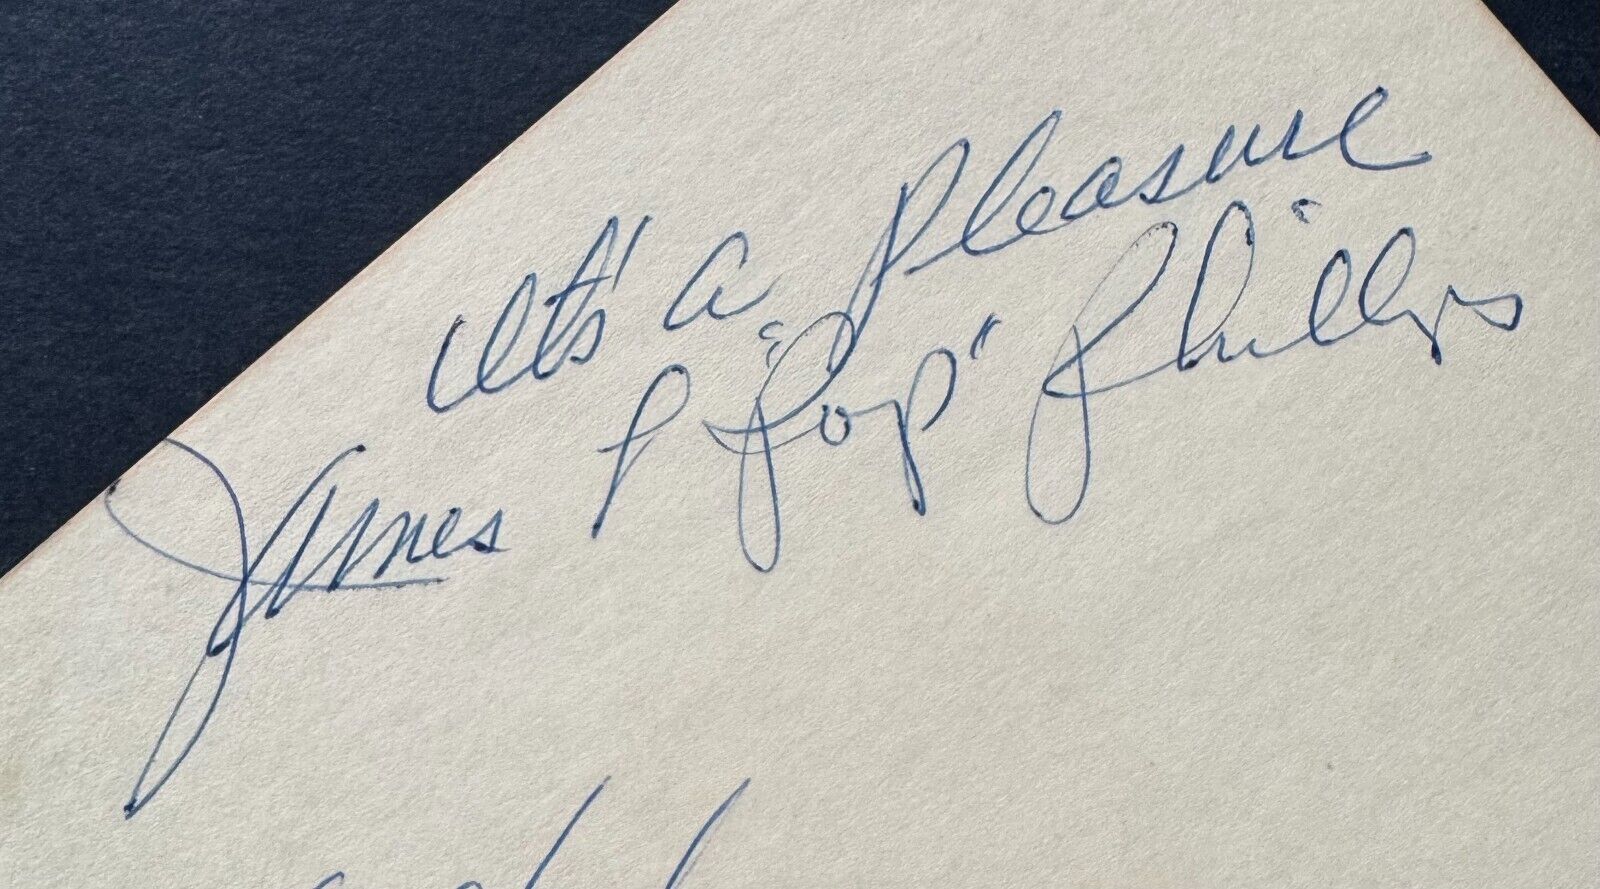 It's a Pleasure
James L "Pop" Phillips